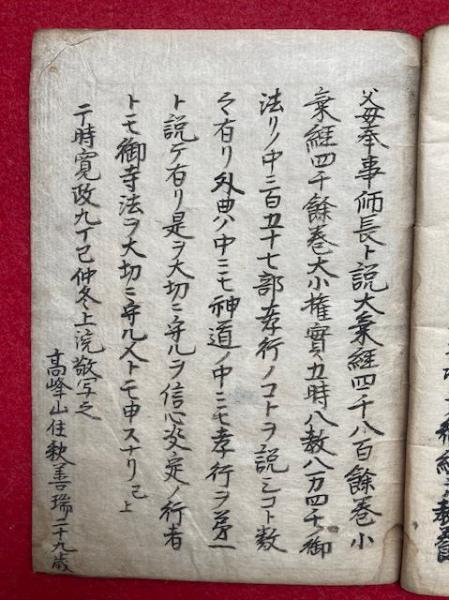 父母奉事師長ト説大乗経四千八百餘巻小
乗経四千餘巻大小権實五時八教八万四千ノ御
法リノ中ニ百五十七部孝行ノコトヲ説シコト数
々有リ外典ノ中ニモ神道ノ中ニモ孝行ヲ第一
ト説テ有リ是ヲ大切ニ守ルヲ信心決定ノ行者
トモ御寺法ヲ大切ニ守ル人トモ申スナリ已上
于時寛政九丁巳仲冬上浣敬写之
高峰山住釈善瑞二十九歳